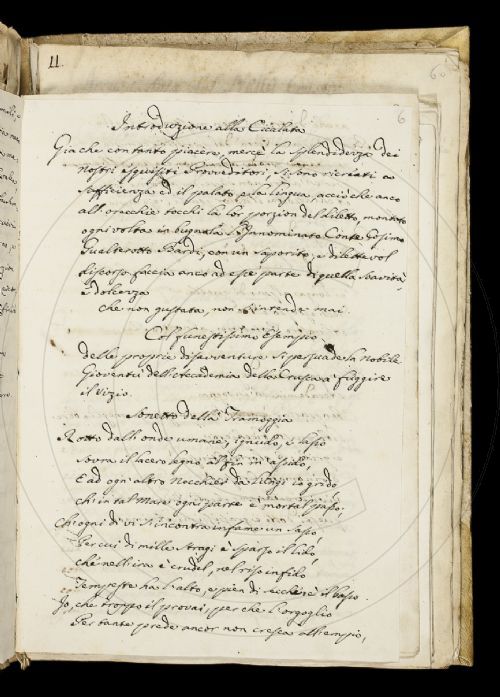 11.
6
Introduzione alla Cicalata
Gia che con tanto piacere, mercè la Splendidezza dei
nostri esquisiti Provveditori, si sono ricreati a
sofficienza ed il palato, e la lingua, acciò che anco
all' orecchie tocchi la lor porzion del diletto, montato
ogni volta in bugnola l'Innominato Conte Cosimo
Gualterotto Bardi, con un saporito, e dilettevol
discorso faccia anco ad esse parte di quella soavità,
e dolcezza
Che non gustata, non s'intende mai.
Col funestissimo Esempio
delle proprie disavventure si persuade la nobile
Gioventù dell'Accademia della Crusca a fuggire
il vizio.
Sonetto della Tramoggia
Rotto dall'onde umane, ignudo, e lasso
Sovra il lacero legno alfin m'assido,
E ad ogni altro Nocchier da lungi io grido
Ch'in tal Mare ogni parte è mortal passo,
Ch'ogni dì vi s'incontra infame un sasso,
Per cui di mille stragi è sparso il lido,
Che nell'ira è crudel, nel riso infido
Tempeste ha l'alto, e pien di secche è il basso.
Io, che troppo il provai, perche l'orgoglio
Per tante prede ancor non cresca all'empio,